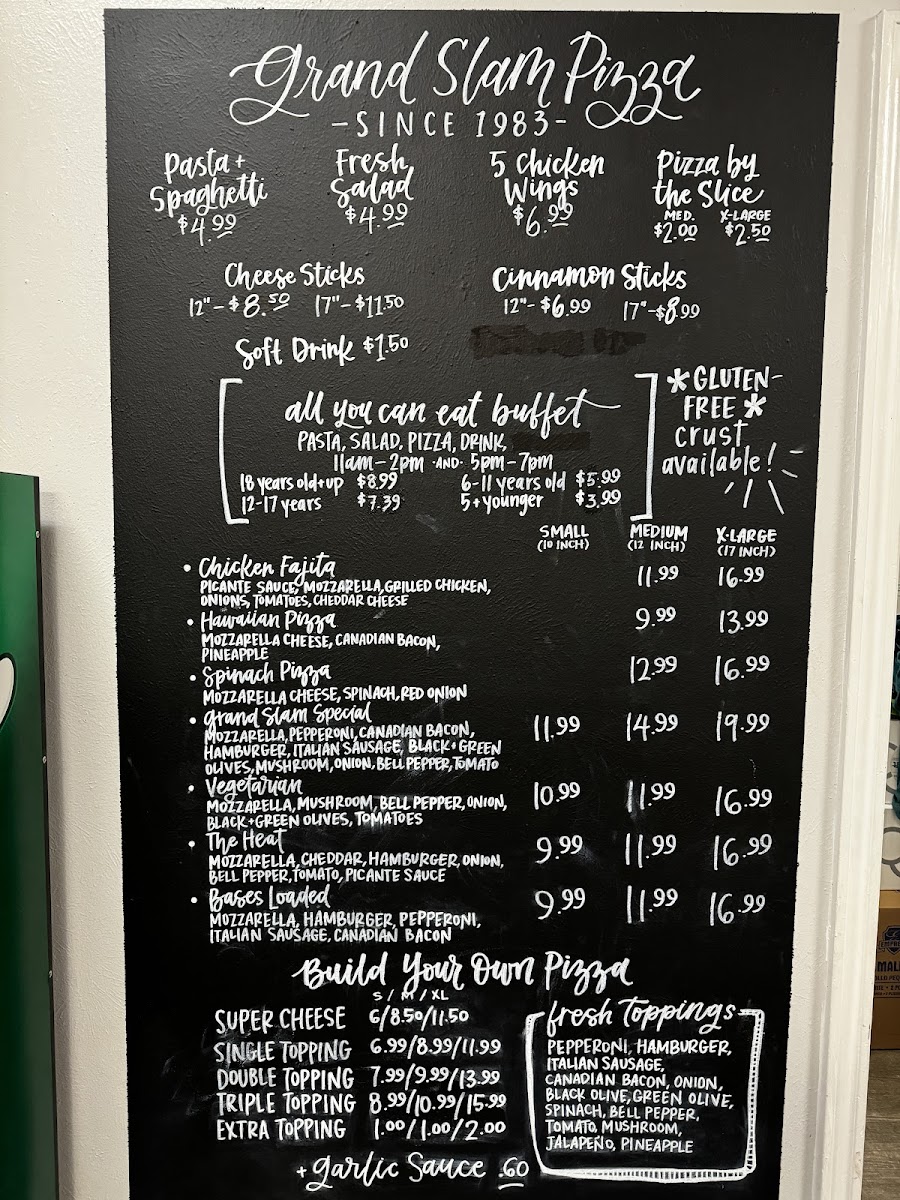 Grand Slam Pizza
-SINCE 1983-
Pasta + Spaghetti $4.99
Fresh Salad $4.99
5 Chicken Wings $6.99
Pizza by the Slice
MED. $2.00 X-LARGE $2.50
Cheese Sticks
12"-$8.50 17"-$11.50
Cinnamon Sticks
12"-$6.99 17"-$8.99
Soft Drink $1.50
all you can eat buffet
PASTA, SALAD, PIZZA, DRINK,
11am-2pm AND 5pm-7pm
18 years old+up $8.99 6-11 years old $5.99
12-17 years $7.39 5+younger $3.99
*GLUTEN-
FREE*
crust
available!
SMALL (10 INCH) MEDIUM (12 INCH) X-LARGE (17 INCH)
• Chicken Fajita 11.99 16.99
PICANTE SAUCE, MOZZARELLA, GRILLED CHICKEN,
ONIONS, TOMATOES, CHEDDAR CHEESE
• Hawaiian Pizza 9.99 13.99
MOZZARELLA CHEESE, CANADIAN BACON,
PINEAPPLE
• Spinach Pizza 12.99 16.99
MOZZARELLA CHEESE, SPINACH, RED ONION
• Grand Slam Special 11.99 14.99 19.99
MOZZARELLA, PEPPERONI, CANADIAN BACON,
HAMBURGER, ITALIAN SAUSAGE, BLACK+GREEN
OLIVES, MUSHROOM, ONION, BELL PEPPER, TOMATO
• Vegetarian 10.99 11.99 16.99
MOZZARELLA, MUSHROOM, BELL PEPPER, ONION,
BLACK+GREEN OLIVES, TOMATOES
• The Heat 9.99 11.99 16.99
MOZZARELLA, CHEDDAR, HAMBURGER, ONION,
BELL PEPPER, TOMATO, PICANTE SAUCE
• Bases Loaded 9.99 11.99 16.99
MOZZARELLA, HAMBURGER, PEPPERONI,
ITALIAN SAUSAGE, CANADIAN BACON
Build Your Own Pizza
S / M / XL
SUPER CHEESE 6/8.50/11.50
SINGLE TOPPING 6.99/8.99/11.99
DOUBLE TOPPING 7.99/9.99/13.99
TRIPLE TOPPING 8.99/10.99/15.99
EXTRA TOPPING 1.00/1.00/2.00
+ garlic Sauce .60
fresh Toppings
PEPPERONI, HAMBURGER,
ITALIAN SAUSAGE,
CANADIAN BACON, ONION,
BLACK OLIVE, GREEN OLIVE,
SPINACH, BELL PEPPER,
TOMATO, MUSHROOM,
JALAPEÑO, PINEAPPLE